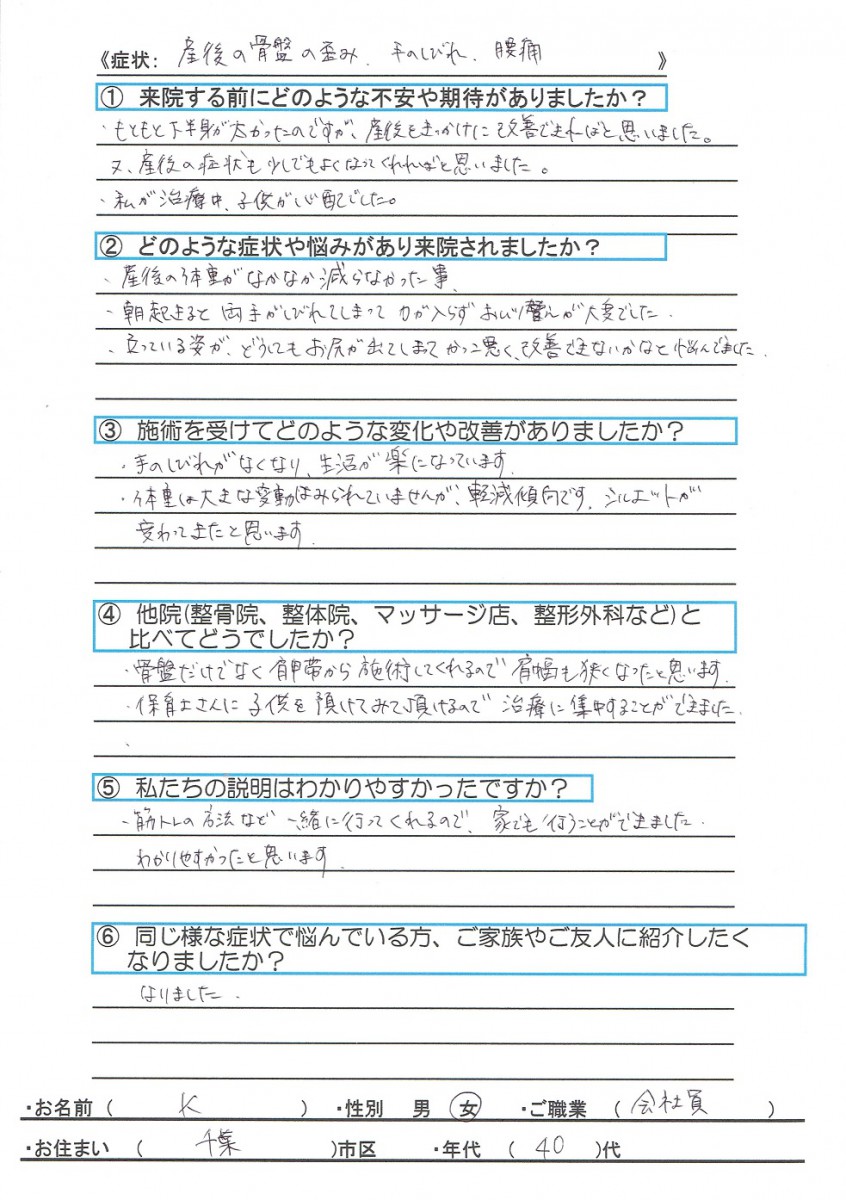 《症状: 産後の骨盤の歪み、手のしびれ、腰痛 》
① 来院する前にどのような不安や期待がありましたか？
・もともと下半身が太かったのですが、産後をきっかけに改善できればと思いました。
又、産後の症状も少しでもよくなってくれればと思いました。
・私が治療中、子供が心配でした。
② どのような症状や悩みがあり来院されましたか？
・産後の体重がなかなか減らなかった事、
・朝起きると両手がしびれてしまって力が入らずおむつ替えが大変でした.
・立っている姿が、どうしてもお尻が出てしまってかっこ悪く、改善できないかなと悩んでました.
③ 施術を受けてどのような変化や改善がありましたか？
・手のしびれがなくなり、生活が楽になっています.
・体重は大きな変動はみられていませんが、軽減傾向です. シルエットが
変わってきたと思います.
④ 他院(整骨院、整体院、マッサージ店、整形外科など)と
比べてどうでしたか？
・骨盤だけでなく肩甲帯から施術してくれるので肩幅も狭くなったと思います.
・保育士さんに子供を預けてみて頂けるので治療に集中することができました.
・
⑤ 私たちの説明はわかりやすかったですか？
・筋トレの方法など一緒に行ってくれるので、家でも行うことができました.
わかりやすかったと思います.
⑥ 同じ様な症状で悩んでいる方、ご家族やご友人に紹介したく
なりましたか？
なりました.
・お名前 ( K ) ・性別 男 女 ・ご職業 ( 会社員 )
・お住まい ( 千葉 )市区 ・年代 ( 40 )代